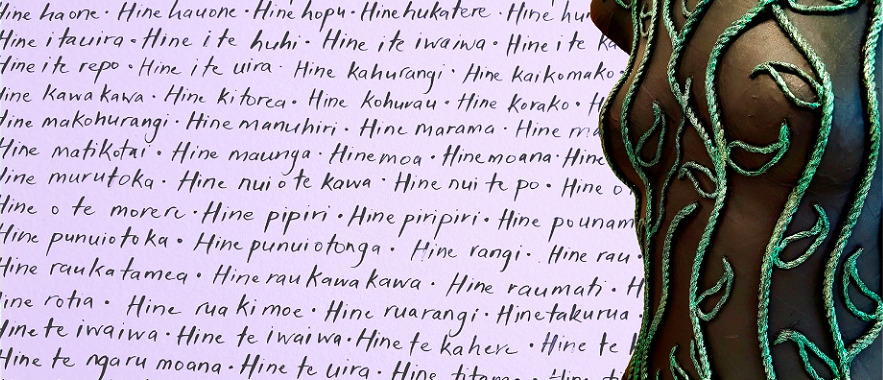 Hine haone · Hine hauone · Hine hopu · Hine hukatere · Hine
Hine itauira · Hine i te huhi · Hine i te iwaiwa · Hine i te
Hine i te repo · Hine i te uira · Hine kahurangi · Hine kaikomako
Hine kawakawa · Hine kitorea · Hine kohurau · Hine korako ·
Hine makohurangi · Hine manuhiri · Hine marama · Hine
Hine matikotai · Hine maunga · Hine moa · Hine moana · Hine
Hine murutoka · Hine nui o te kawa · Hine nui te po · Hine
Hine o te morere · Hine pipiri · Hine piripiri · Hine
Hine punuiotoka · Hine punuiotonga · Hine rangi · Hine rau ·
Hine raukatamea · Hine raukawakawa · Hine raumati ·
Hine rotia · Hine ruakimoe · Hine ruarangi · Hinetakurua ·
Hine te iwaiwa · Hine te iwaiwa · Hine te kahere · Hine te
Hine te ngaru moana · Hine te uira · Hine titama ·